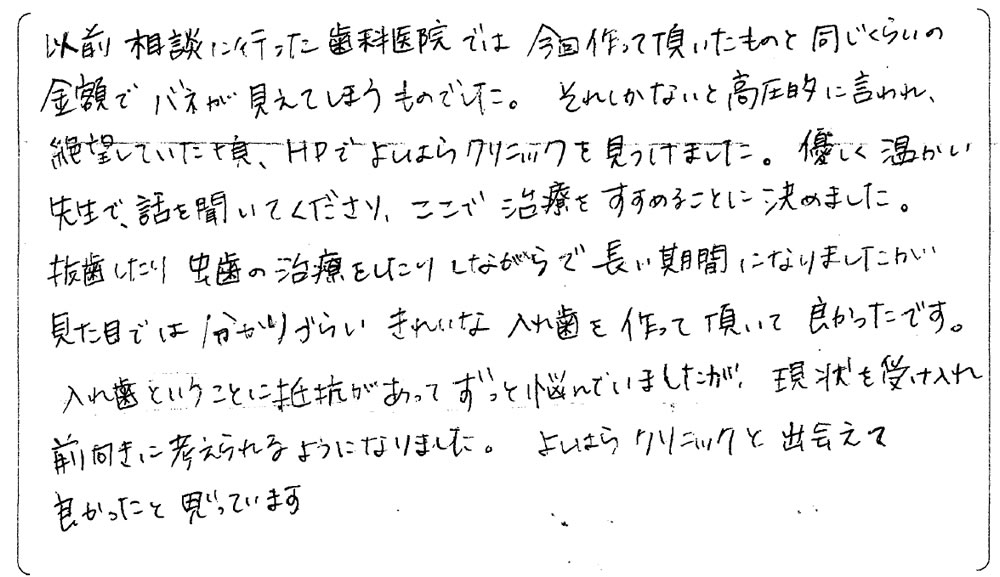 以前 相談に行った歯科医院では 今回作って頂いたものと 同じくらいの
金額で バネが 見えてしまうものでした。 それしかないと高圧的に言われ、
絶望していた頃、HPで よしはらクリニックを 見つけました。 優しく 温かい
先生で、話を聞いてくださり、ここで 治療を すすめることに決めました。
抜歯したり 虫歯の治療をしたりしながらで 長い期間になりましたが
見た目では 分かりづらい きれいな 入れ歯を 作って 頂いて 良かったです。
入れ歯ということに抵抗があって ずっと悩んでいましたが、 現状を受け入れ
前向きに考えられるようになりました。 よしはらクリニックと 出会えて
良かったと 思っています